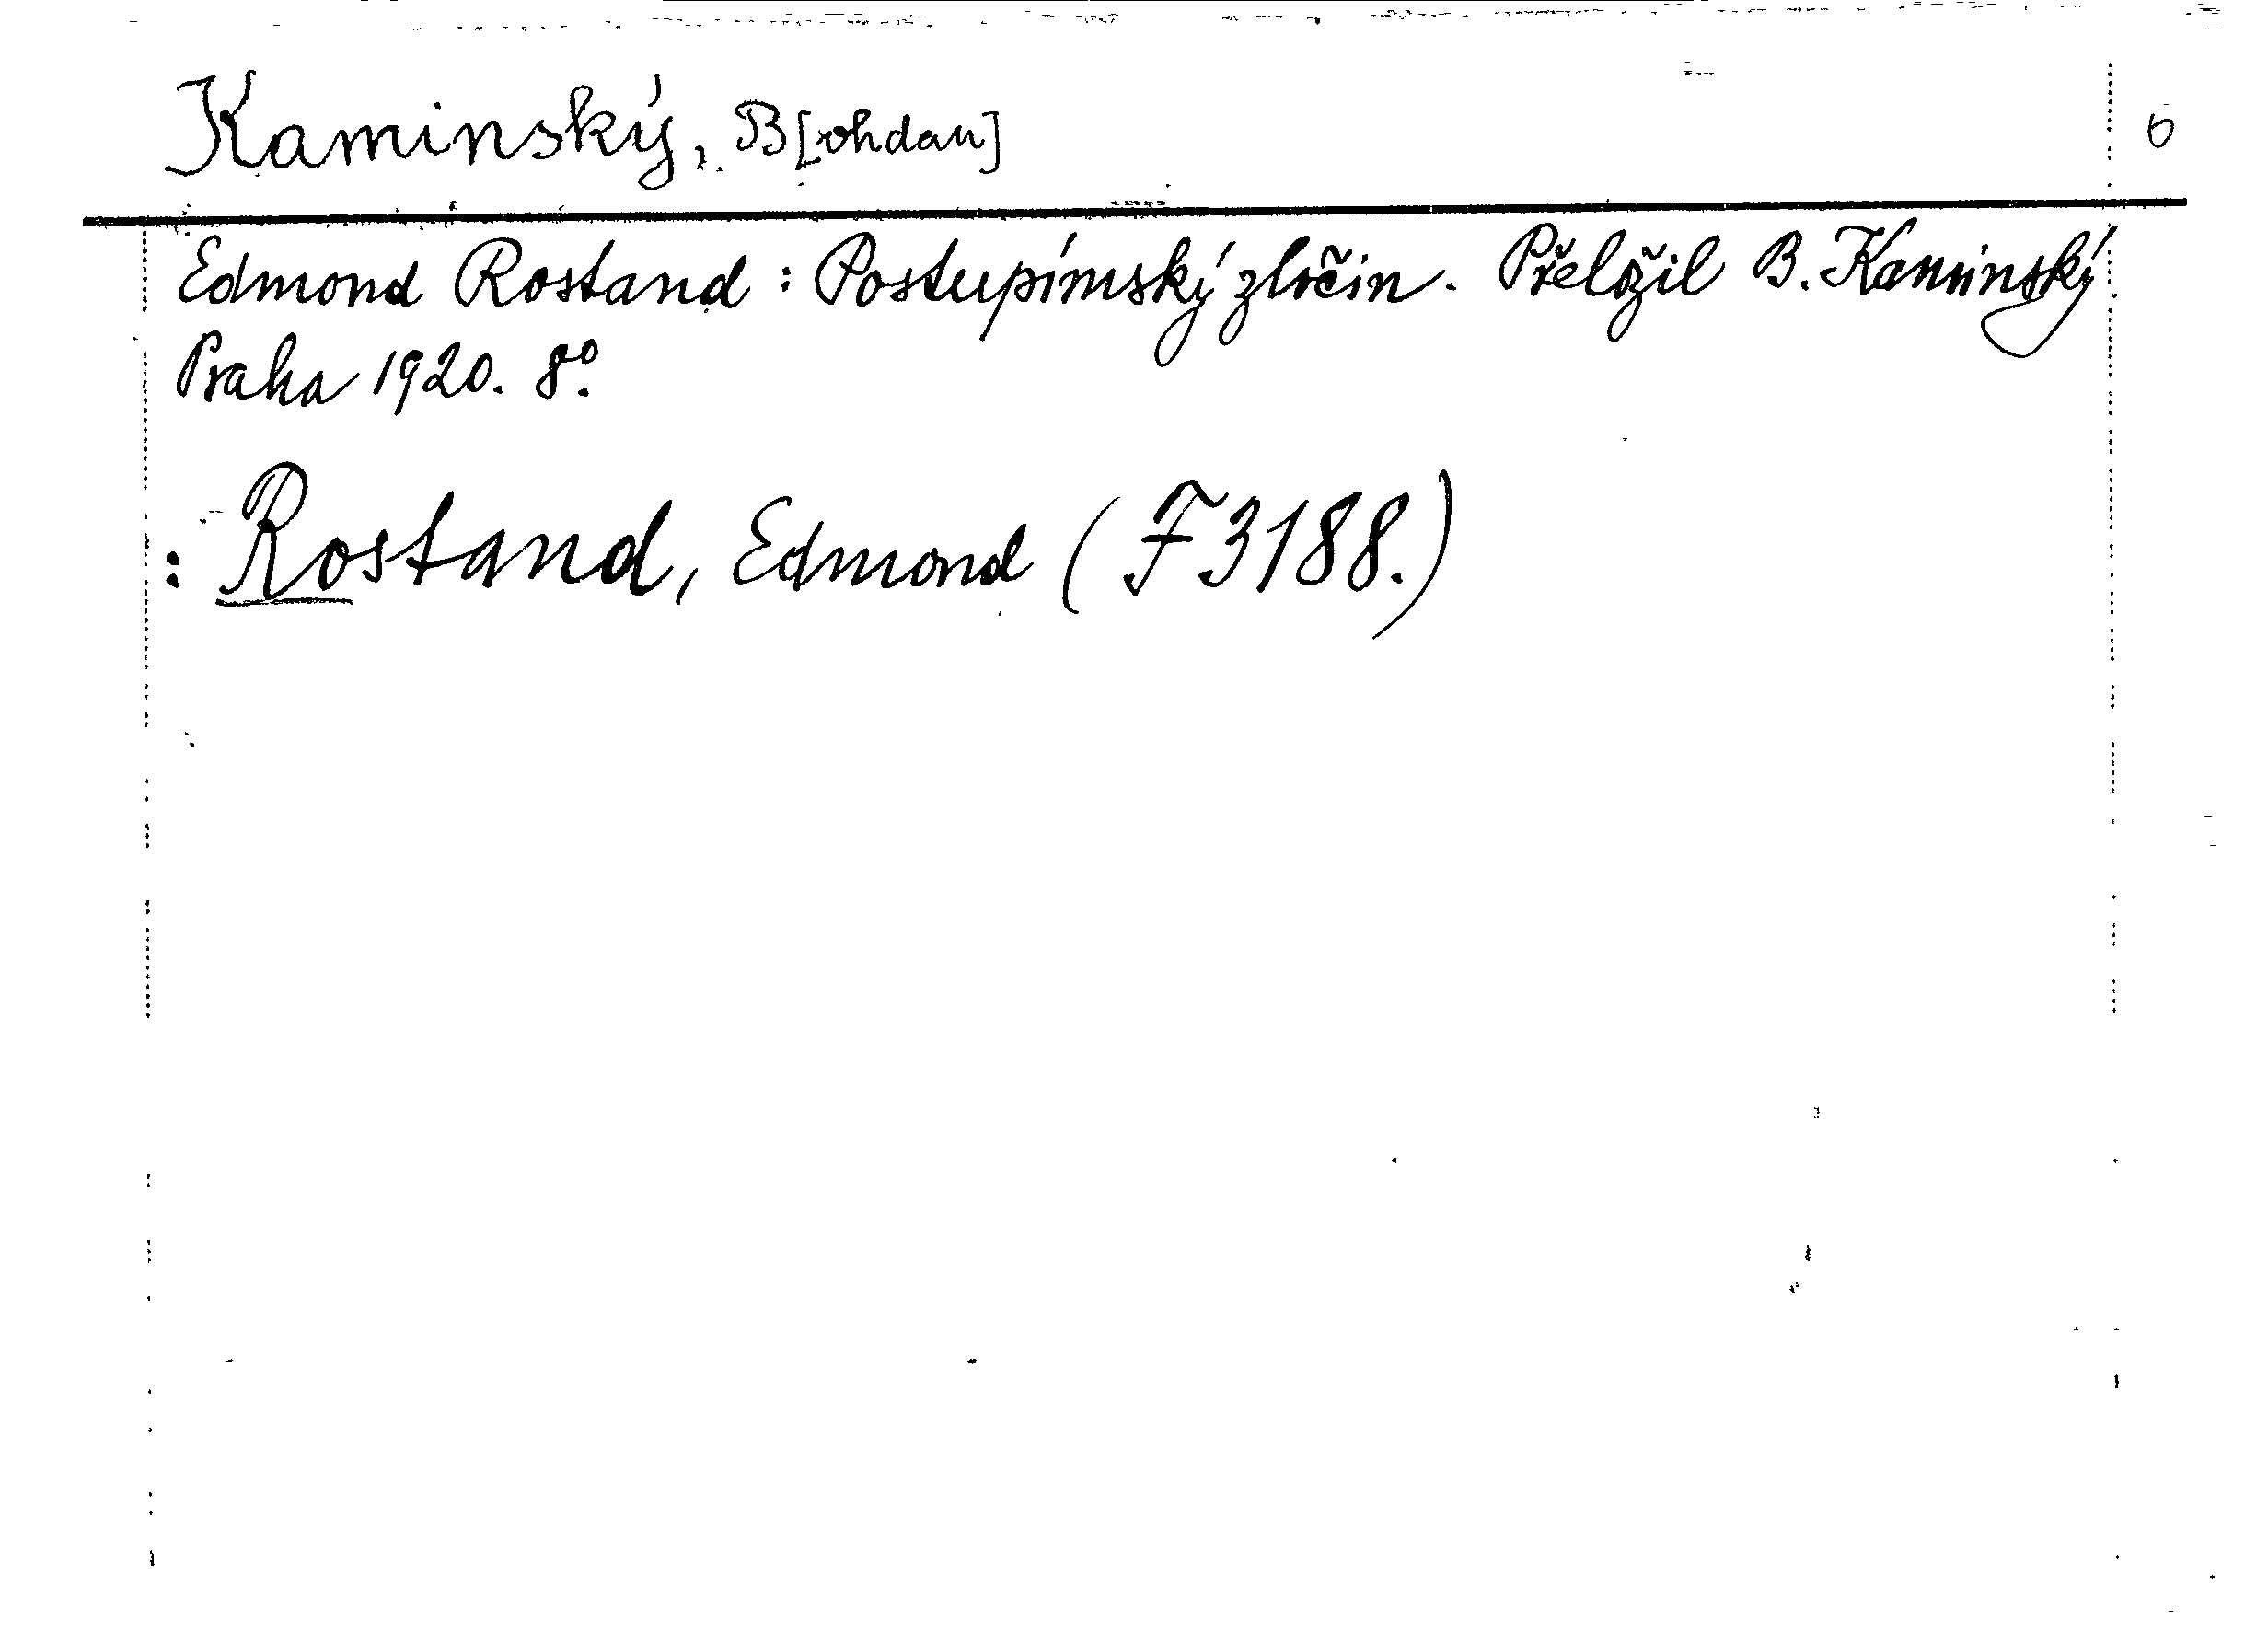 Kaminský, B[ohdan] 6
Edmond Rostand: Postupimský zločin. Přeložil B. Kaminský
Praha 1920. 8°.
: Rostand, Edmond (F 3188.)